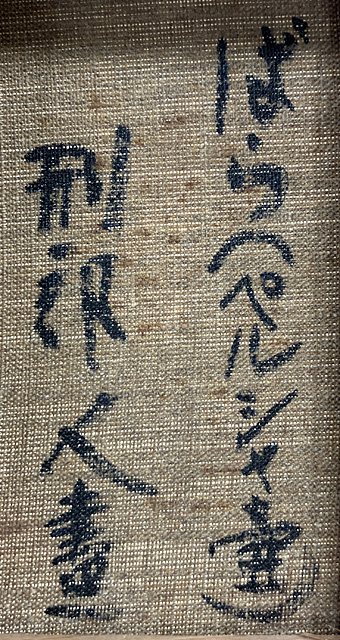 ばら(ペルシャ壷)
刑部人畫